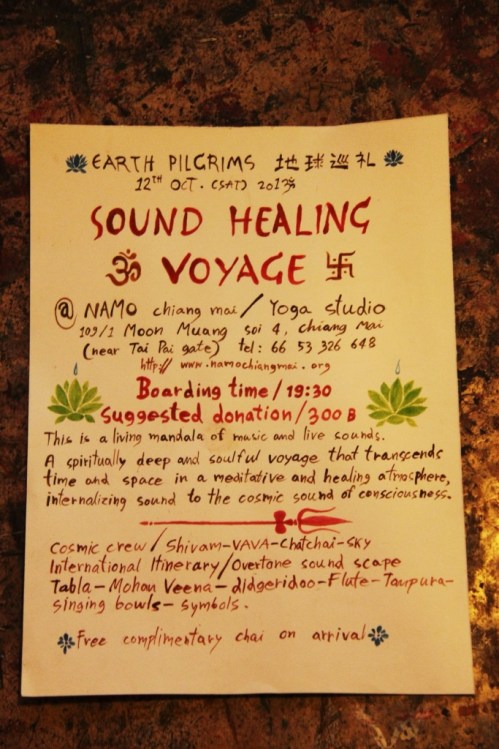 EARTH PILGRIMS 地球巡礼
12TH OCT. (SAT) 2013
SOUND HEALING
ॐ VOYAGE 卐
@ NAMO chiang mai / Yoga studio
109/1 Moon Muang soi 4, chiang Mai
(near Tai Pai gate) tel: 66 53 326 648
http// www.namochiangmai.org
Boarding time / 19:30
Suggested donation / 300 B
This is a living mandala of music and live sounds.
A spiritually deep and soulful voyage that transcends
time and space in a meditative and healing atmosphere,
internalizing sound to the cosmic sound of consciousness.
Cosmic crew / Shivam-VAVA-Chatchai-SKY
International Itinerary / Overtone sound scape
Tabla-Mohan Veena-didgeridoo-Flute-Tanpura-
singing bowls-symbols.
Free complimentary chai on arrival